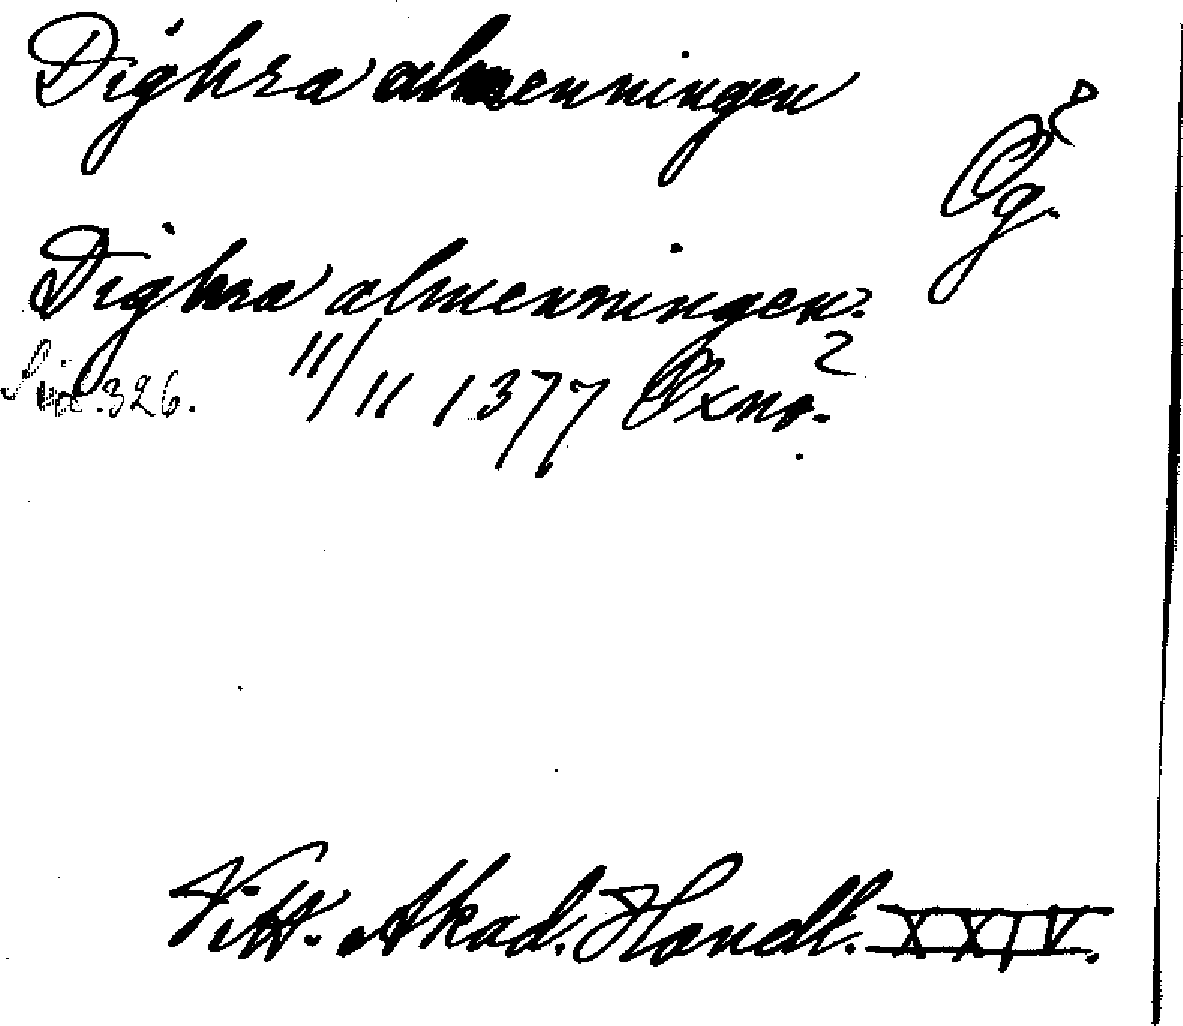 Dighra almenningen
Ög.
Dighra almenningen.
Sid. 326. 11/11 1377 Oxnö. 2
Vitt. Akad. Handl. XXIV.